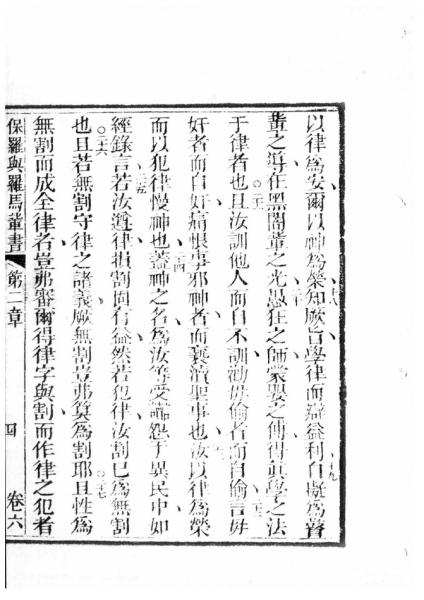 十八 十九
以律為安爾以神為榮知厥旨學律而辯益利自擬為瞽
二十
輩之導在黑闇輩之光愚狂之師蒙嬰之傅得真學之法
○二一 二二
于律者也且汝訓他人而自不訓勸毋偷者而自偷言毋
奸者而自奸痛恨事邪神者而褻瀆聖事也汝以律為榮
二四
而以犯律慢神也蓋神之名為汝等受怨于異民中如
二五
經錄言若汝遵律損割固有益然若犯律汝割已為無割
○二六 ○二七
也且若無割守律之諸義厥無割豈弗算為割耶且性為
無割而成全律者豈弗審爾得律字與割而作律之犯者
保羅與羅馬輩書 第二章 四 卷六